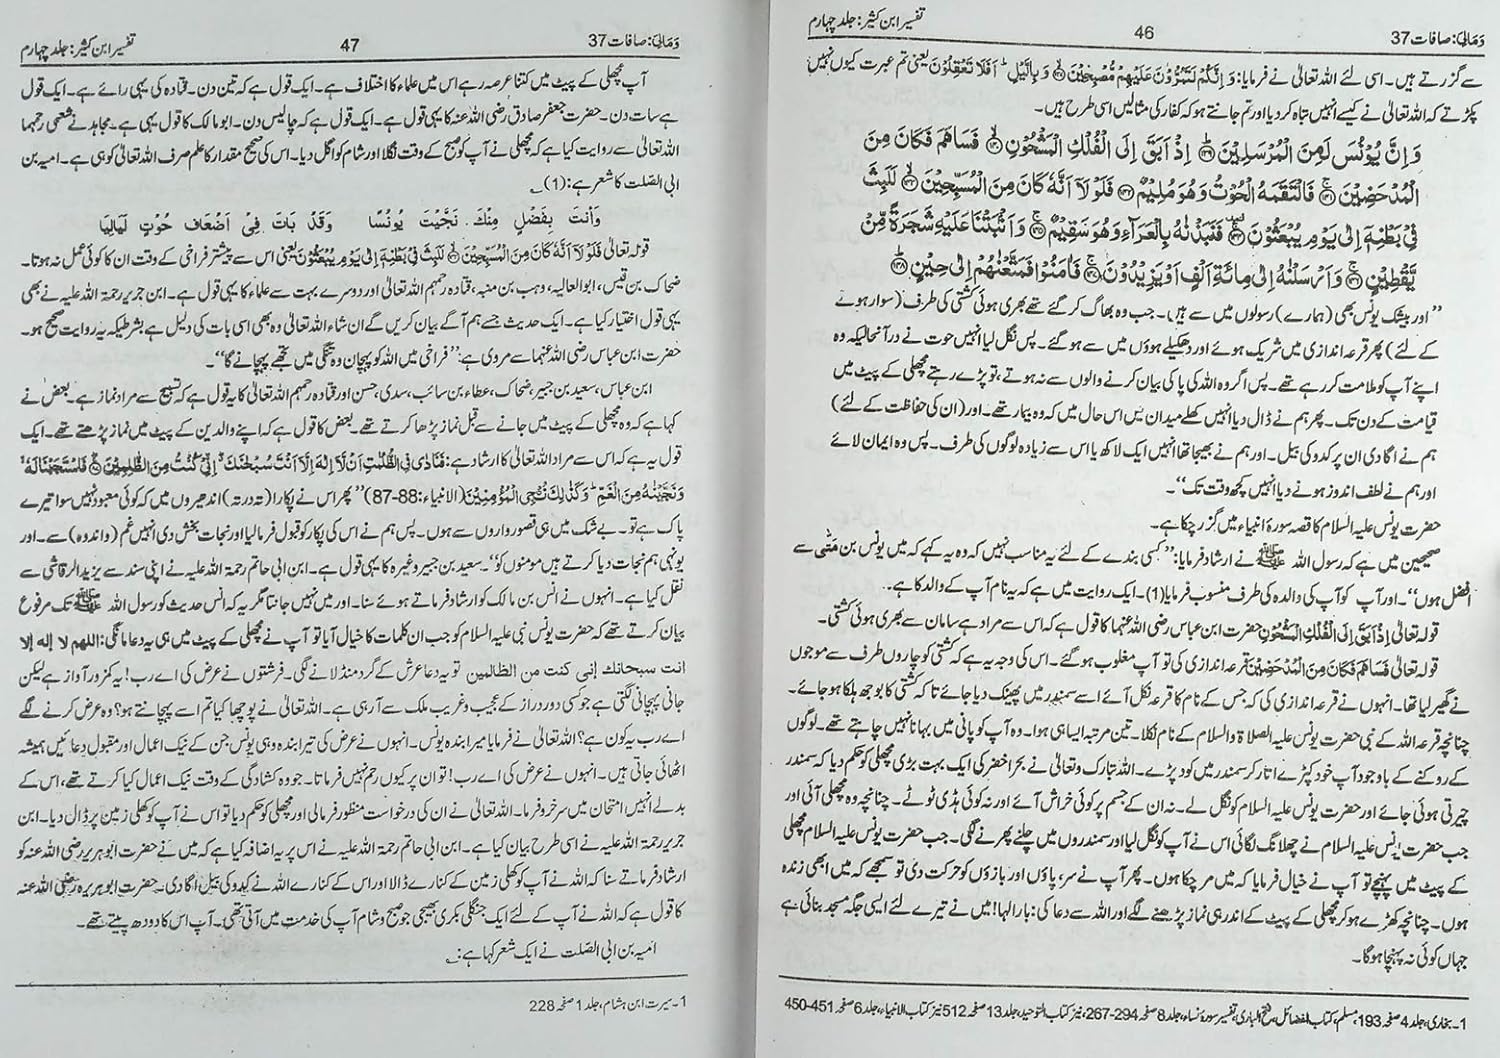 وَمَالِیَ: صافات 37
46
تفسیر ابن کثیر: جلد چہارم
سے گزرتے ہیں۔ اسی لئے اللہ تعالیٰ نے فرمایا: وَاِنَّكُمْ لَتَمُرُّوْنَ عَلَيْهِمْ مُّصْبِحِيْنَ ۝ وَبِالَّيْلِ ۭ اَفَلَا تَعْقِلُوْنَ یعنی تم عبرت کیوں نہیں
پکڑتے کہ اللہ تعالیٰ نے کیسے انہیں تباہ کر دیا اور تم جانتے ہو کہ کفار کی مثالیں اسی طرح ہیں۔
وَاِنَّ يُوْنُسَ لَمِنَ الْمُرْسَلِيْنَ ۝ اِذْ اَبَقَ اِلَى الْفُلْكِ الْمَشْحُوْنِ ۝ فَسَاهَمَ فَكَانَ مِنَ
الْمُدْحَضِيْنَ ۝ فَالْتَقَمَهُ الْحُوْتُ وَهُوَ مُلِيْمٌ ۝ فَلَوْلَآ اَنَّهٗ كَانَ مِنَ الْمُسَبِّحِيْنَ ۝ لَلَبِثَ
فِيْ بَطْنِهٖٓ اِلٰى يَوْمِ يُبْعَثُوْنَ ۝ فَنَبَذْنٰهُ بِالْعَرَاۗءِ وَهُوَ سَقِيْمٌ ۝ وَاَنْۢبَتْنَا عَلَيْهِ شَجَرَةً مِّنْ
يَّقْطِيْنٍ ۝ وَاَرْسَلْنٰهُ اِلٰى مِائَةِ اَلْفٍ اَوْ يَزِيْدُوْنَ ۝ فَاٰمَنُوْا فَمَتَّعْنٰهُمْ اِلٰى حِيْنٍ ۝
’’اور بیشک یونس بھی (ہمارے) رسولوں میں سے ہیں۔ جب وہ بھاگ کر گئے تھے بھری ہوئی کشتی کی طرف (سوار ہونے
کے لئے) پھر قرعہ اندازی میں شریک ہوئے اور دھکیلے ہوؤں میں سے ہو گئے۔ پس نگل لیا انہیں حوت نے درآنحالیکہ وہ
اپنے آپ کو ملامت کر رہے تھے۔ پس اگر وہ اللہ کی پاکی بیان کرنے والوں سے نہ ہوتے، تو پڑے رہتے مچھلی کے پیٹ میں
قیامت کے دن تک۔ پھر ہم نے ڈال دیا انہیں کھلے میدان میں اس حال میں کہ وہ بیمار تھے۔ اور (ان کی حفاظت کے لئے)
ہم نے اگا دی ان پر کدو کی بیل۔ اور ہم نے بھیجا تھا انہیں ایک لاکھ یا اس سے زیادہ لوگوں کی طرف۔ پس وہ ایمان لائے
اور ہم نے لطف اندوز ہونے دیا انہیں کچھ وقت تک‘‘۔
حضرت یونس علیہ السلام کا قصہ سورۂ انبیاء میں گزر چکا ہے۔
صحیحین میں ہے کہ رسول اللہ ﷺ نے ارشاد فرمایا: ’’کسی بندے کے لئے یہ مناسب نہیں کہ وہ یہ کہے کہ میں یونس بن مَتّٰی سے
افضل ہوں‘‘۔ اور آپ کو آپ کی والدہ کی طرف منسوب فرمایا (1)۔ ایک روایت میں ہے کہ یہ نام آپ کے والد کا ہے۔
قولہ تعالیٰ اِذْ اَبَقَ اِلَى الْفُلْكِ الْمَشْحُوْنِ حضرت ابن عباس رضی اللہ عنہما کا قول ہے کہ اس سے مراد ہے سامان سے بھری ہوئی کشتی۔
قولہ تعالیٰ فَسَاهَمَ فَكَانَ مِنَ الْمُدْحَضِيْنَ قرعہ اندازی کی تو آپ مغلوب ہو گئے۔ اس کی وجہ یہ ہے کہ کشتی کو چاروں طرف سے موجوں
نے گھیر لیا تھا۔ انہوں نے قرعہ اندازی کی کہ جس کے نام کا قرعہ نکل آئے اسے سمندر میں پھینک دیا جائے تاکہ کشتی کا بوجھ ہلکا ہو جائے۔
چنانچہ قرعہ اللہ کے نبی حضرت یونس علیہ الصلاۃ والسلام کے نام نکلا۔ تین مرتبہ ایسا ہی ہوا۔ وہ آپ کو پانی میں بہانا نہیں چاہتے تھے۔ لوگوں
کے روکنے کے باوجود آپ خود کپڑے اتار کر سمندر میں کود پڑے۔ اللہ تبارک وتعالیٰ نے بحر اخضر کی ایک بہت بڑی مچھلی کو حکم دیا کہ سمندر
چیرتی ہوئی جائے اور حضرت یونس علیہ السلام کو نگل لے۔ نہ ان کے جسم پر کوئی خراش آئے اور نہ کوئی ہڈی ٹوٹے۔ چنانچہ وہ مچھلی آئی اور
جب حضرت یونس علیہ السلام نے چھلانگ لگائی اس نے آپ کو نگل لیا اور سمندروں میں چلنے پھرنے لگی۔ جب حضرت یونس علیہ السلام مچھلی
کے پیٹ میں پہنچے تو آپ نے خیال فرمایا کہ میں مر چکا ہوں۔ پھر آپ نے سر، پاؤں اور بازوؤں کو حرکت دی تو سمجھے کہ میں ابھی زندہ
ہوں۔ چنانچہ کھڑے ہو کر مچھلی کے پیٹ کے اندر ہی نماز پڑھنے لگے اور اللہ سے دعا کی: بار الہا! میں نے تیرے لئے ایسی جگہ مسجد بنائی ہے
جہاں کوئی نہ پہنچا ہوگا۔
1۔ بخاری، جلد 4 صفحہ 193، مسلم، کتاب الفضائل، فتح الباری، تفسیر سورۂ نساء، جلد 8 صفحہ 294-267، نیز کتاب التوحید، جلد 13 صفحہ 512 نیز کتاب الانبیاء، جلد 6 صفحہ 451-450
وَمَالِیَ: صافات 37
47
تفسیر ابن کثیر: جلد چہارم
آپ مچھلی کے پیٹ میں کتنا عرصہ رہے اس میں علماء کا اختلاف ہے۔ ایک قول ہے کہ تین دن۔ قتادہ کی یہی رائے ہے۔ ایک قول
ہے سات دن۔ حضرت جعفر صادق رضی اللہ عنہ کا یہی قول ہے۔ ایک قول ہے کہ چالیس دن۔ ابو مالک کا قول یہی ہے۔ مجاہد نے شعبی رحمہما
اللہ تعالیٰ سے روایت کیا ہے کہ مچھلی نے آپ کو صبح کے وقت نگلا اور شام کو اگل دیا۔ اس کی صحیح مقدار کا علم صرف اللہ تعالیٰ کو ہی ہے۔ امیہ بن
ابی الصّلت کا شعر ہے: (1)
وَاَنْتَ بِفَضْلٍ مِنْكَ نَجَّيْتَ يُوْنُسًا وَقَدْ بَاتَ فِيْ اَضْعَافِ حُوْتٍ لَيَالِيَا
قولہ تعالیٰ فَلَوْلَآ اَنَّهٗ كَانَ مِنَ الْمُسَبِّحِيْنَ ۝ لَلَبِثَ فِيْ بَطْنِهٖٓ اِلٰى يَوْمِ يُبْعَثُوْنَ یعنی اس سے پیشتر فراخی کے وقت ان کا کوئی عمل نہ ہوتا۔
ضحاک بن قیس، ابوالعالیہ، وہب بن منبہ، قتادہ رحمہم اللہ تعالیٰ اور دوسرے بہت سے علماء کا یہی قول ہے۔ ابن جریر رحمۃ اللہ علیہ نے بھی
یہی قول اختیار کیا ہے۔ ایک حدیث جسے ہم آگے بیان کریں گے ان شاء اللہ تعالیٰ وہ بھی اسی بات کی دلیل ہے بشرطیکہ یہ روایت صحیح ہو۔
حضرت ابن عباس رضی اللہ عنہما سے مروی ہے: ’’فراخی میں اللہ کو پہچان وہ تنگی میں تجھے پہچانے گا‘‘۔
ابن عباس، سعید بن جبیر، ضحاک، عطاء بن سائب، سدی، حسن اور قتادہ رحمہم اللہ تعالیٰ کا یہ قول ہے کہ تسبیح سے مراد نماز ہے۔ بعض نے
کہا ہے کہ وہ مچھلی کے پیٹ میں جانے سے قبل نماز پڑھا کرتے تھے۔ بعض کا قول ہے کہ اپنے والدین کے پیٹ میں نماز پڑھتے تھے۔ ایک
قول یہ ہے کہ اس سے مراد اللہ تعالیٰ کا ارشاد ہے: فَنَادٰى فِي الظُّلُمٰتِ اَنْ لَّآ اِلٰهَ اِلَّآ اَنْتَ سُبْحٰنَكَ ۤ اِنِّىْ كُنْتُ مِنَ الظّٰلِمِيْنَ ۝ فَاسْتَجَبْنَا لَهٗ ۙ
وَنَجَّيْنٰهُ مِنَ الْغَمِّ ۭ وَكَذٰلِكَ نُـنْجِي الْمُؤْمِنِيْنَ (الانبیاء: 88-87) ’’پھر اس نے پکارا (تہ در تہ) اندھیروں میں کہ کوئی معبود نہیں سوا تیرے
پاک ہے تو۔ بے شک میں ہی قصور واروں سے ہوں۔ پس ہم نے اس کی پکار کو قبول فرما لیا اور نجات بخش دی انہیں غم (واندوہ) سے۔ اور
یونہی ہم نجات دیا کرتے ہیں مومنوں کو‘‘۔ سعید بن جبیر وغیرہ کا یہی قول ہے۔ ابن ابی حاتم رحمۃ اللہ علیہ نے اپنی سند سے یزید الرقاشی سے
نقل کیا ہے۔ انہوں نے انس بن مالک کو ارشاد فرماتے ہوئے سنا۔ اور میں نہیں جانتا مگر یہ کہ انس حدیث کو رسول اللہ ﷺ تک مرفوع
بیان کرتے تھے کہ حضرت یونس نبی علیہ السلام کو جب ان کلمات کا خیال آیا تو آپ نے مچھلی کے پیٹ میں ہی یہ دعا مانگی: اللهم لا إله إلا
انت سبحانك إنى كنت من الظالمين تو یہ دعا عرش کے گرد منڈلانے لگی۔ فرشتوں نے عرض کی اے رب! یہ کمزور آواز ہے لیکن
جانی پہچانی لگتی ہے جو کسی دور دراز کے عجیب وغریب ملک سے آ رہی ہے۔ اللہ تعالیٰ نے پوچھا کیا تم اسے پہچانتے ہو؟ وہ عرض کرنے لگے
اے رب یہ کون ہے؟ اللہ تعالیٰ نے فرمایا میرا بندہ یونس۔ انہوں نے عرض کی تیرا بندہ وہی یونس جن کے نیک اعمال اور مقبول دعائیں ہمیشہ
اٹھائی جاتی ہیں۔ انہوں نے عرض کی اے رب! تو ان پر کیوں رحم نہیں فرماتا۔ جو وہ کشادگی کے وقت نیک اعمال کیا کرتے تھے، اس کے
بدلے انہیں امتحان میں سرخرو فرما۔ اللہ تعالیٰ نے ان کی درخواست منظور فرما لی اور مچھلی کو حکم دیا تو اس نے آپ کو کھلی زمین پر ڈال دیا۔ ابن
جریر رحمۃ اللہ علیہ نے اسی طرح بیان کیا ہے۔ ابن ابی حاتم رحمۃ اللہ علیہ نے اس پر یہ اضافہ کیا ہے کہ میں نے حضرت ابو ہریرہ رضی اللہ عنہ کو
ارشاد فرماتے سنا کہ اللہ نے آپ کو کھلی زمین کے کنارے ڈالا اور اس کے کنارے اللہ نے کدو کی بیل اگا دی۔ حضرت ابو ہریرہ رضی اللہ عنہ
کا قول ہے کہ اللہ نے آپ کے لئے ایک جنگلی بکری بھیجی جو صبح وشام آپ کی خدمت میں آتی تھی۔ آپ اس کا دودھ پیتے تھے۔
امیہ بن ابی الصّلت نے ایک شعر کہا ہے:
1۔ سیرت ابن ہشام، جلد 1 صفحہ 228